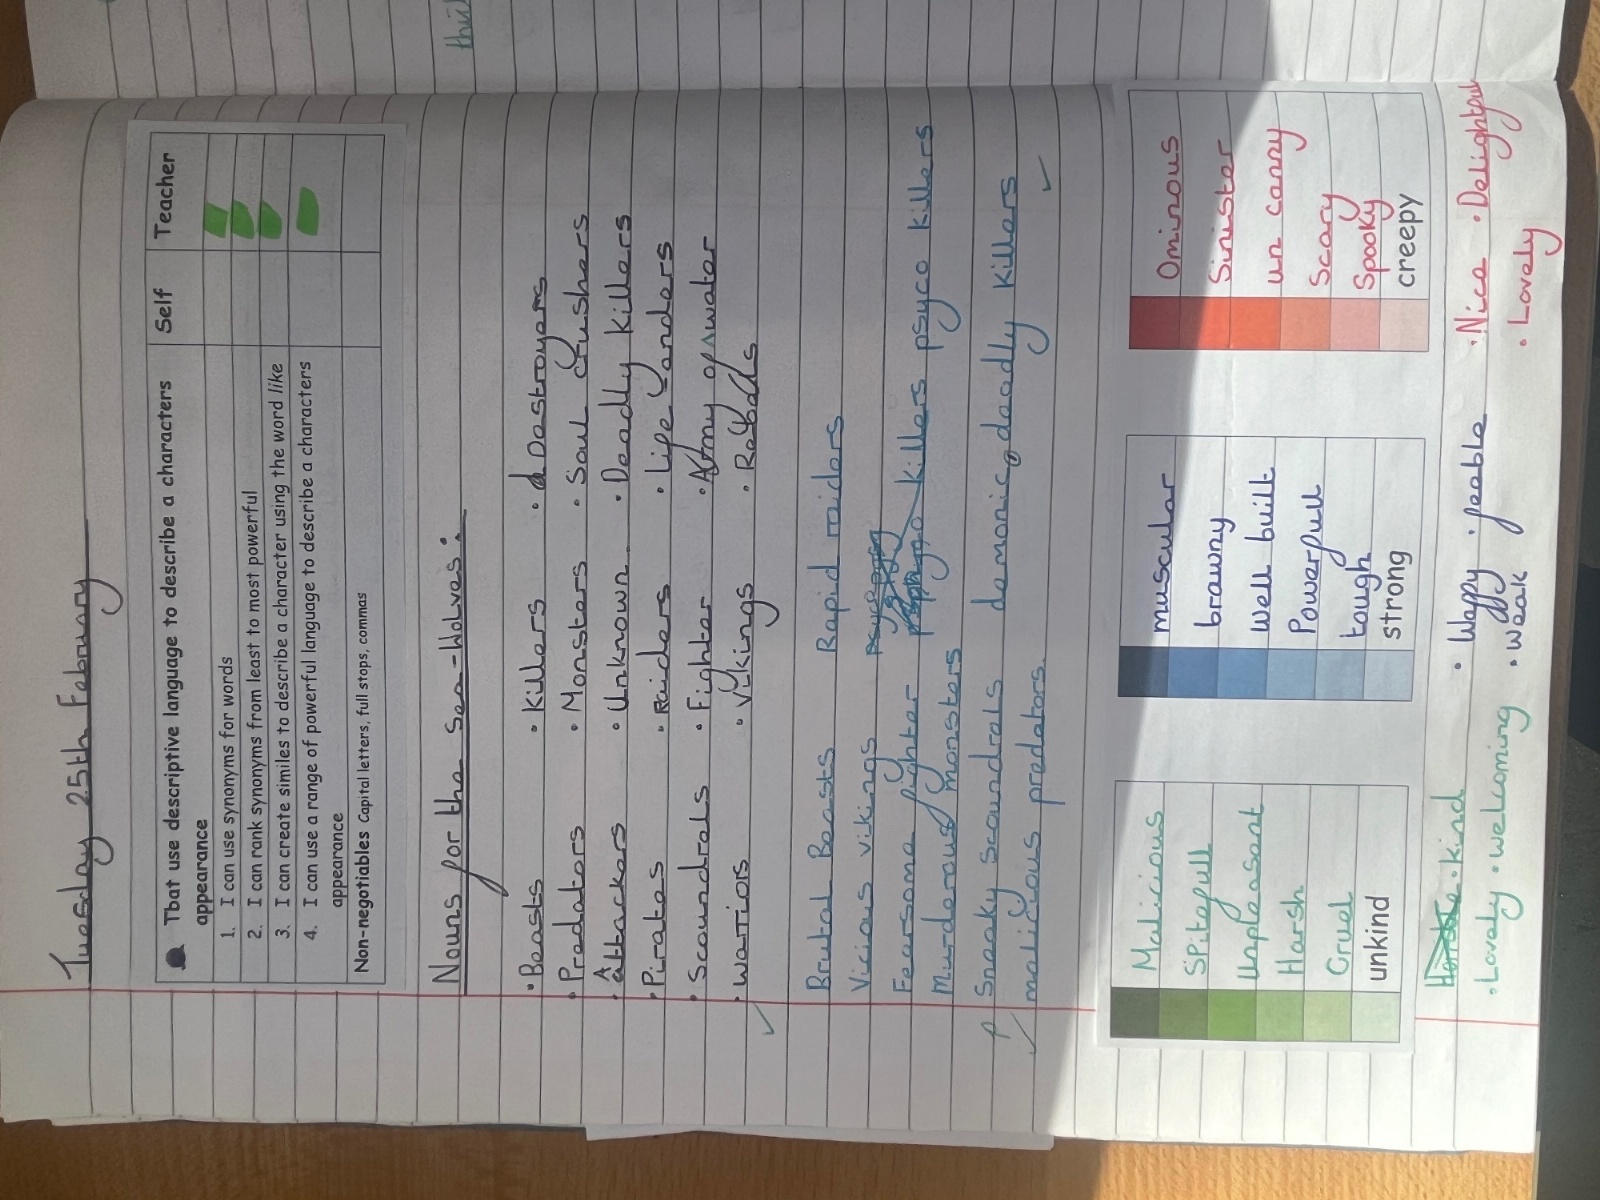 Tuesday 25th February
Tbat use descriptive language to describe a characters appearance
Self
Teacher
1. I can use synonyms for words
2. I can rank synonyms from least to most powerful
3. I can create similes to describe a character using the word like
4. I can use a range of powerful language to describe a characters appearance
Non-negotiables Capital letters, full stops, commas
Nouns for the Sea-Wolves:
• Beasts • Killers • Destroyers
• Predators • Monsters • Soul Crushers
• Attackers • Unknown • Deadly Killers
• Pirates • Raiders • Life enders
• Scoundrals • Fighter • Army of water
• warriors • Vikings
Brutal Beasts Rapid raiders
Vicious vikings
Fearsome fighter killers psyco killers
Murderous monsters
Sneaky scoundrals demonic, deadly killers
malicious predators.
Malicious
SPitefull
Unpleasent
Harsh
Cruel
unkind
muscular
brawny
well built
Powerfull
tough
strong
Ominous
Sinister
un canny
Scary
Spooky
creepy
• kind
• Lovely • welcoming
• Waffy • feable
• weak
• Nice • Delightful
• Lovely